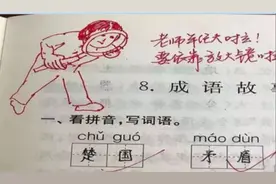 老师年纪大时去!
要依靠放大镜啦
8. 成语故事
一、看拼音,写词语。
chǔ guó máo dùn
楚国 矛盾